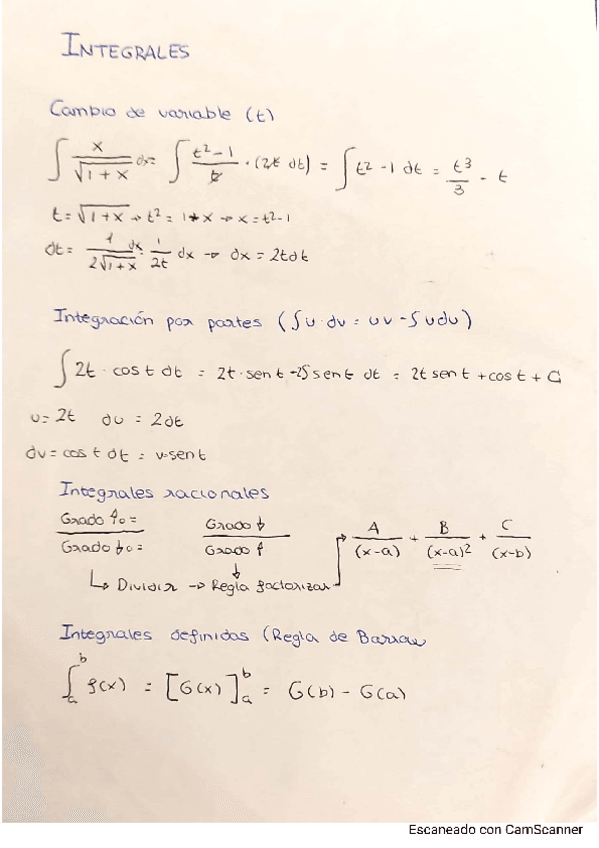 INTEGRALES
Cambio de variable (t)
∫ x/√(1+x) dx = ∫ (t²-1)/t · (2t dt) = ∫ t² - 1 dt = t³/3 - t
t = √(1+x) → t² = 1+x → x = t²-1
dt = 1/(2√(1+x)) dx = 1/(2t) dx → dx = 2t dt
Integración por partes (∫u·dv = uv - ∫vdu)
∫ 2t · cos t dt = 2t · sen t - 2∫ sen t dt = 2t sen t + cos t + C
u = 2t du = 2dt
dv = cos t dt = v = sen t
Integrales racionales
Grado ↑o= / Grado ↓o= Grado ↓ / Grado ↑ A/(x-a) + B/(x-a)² + C/(x-b)
↳ Dividir → Regla factorizar
Integrales definidas (Regla de Barrow
∫ₐᵇ f(x) = [G(x)]ₐᵇ = G(b) - G(a)
Escaneado con CamScanner